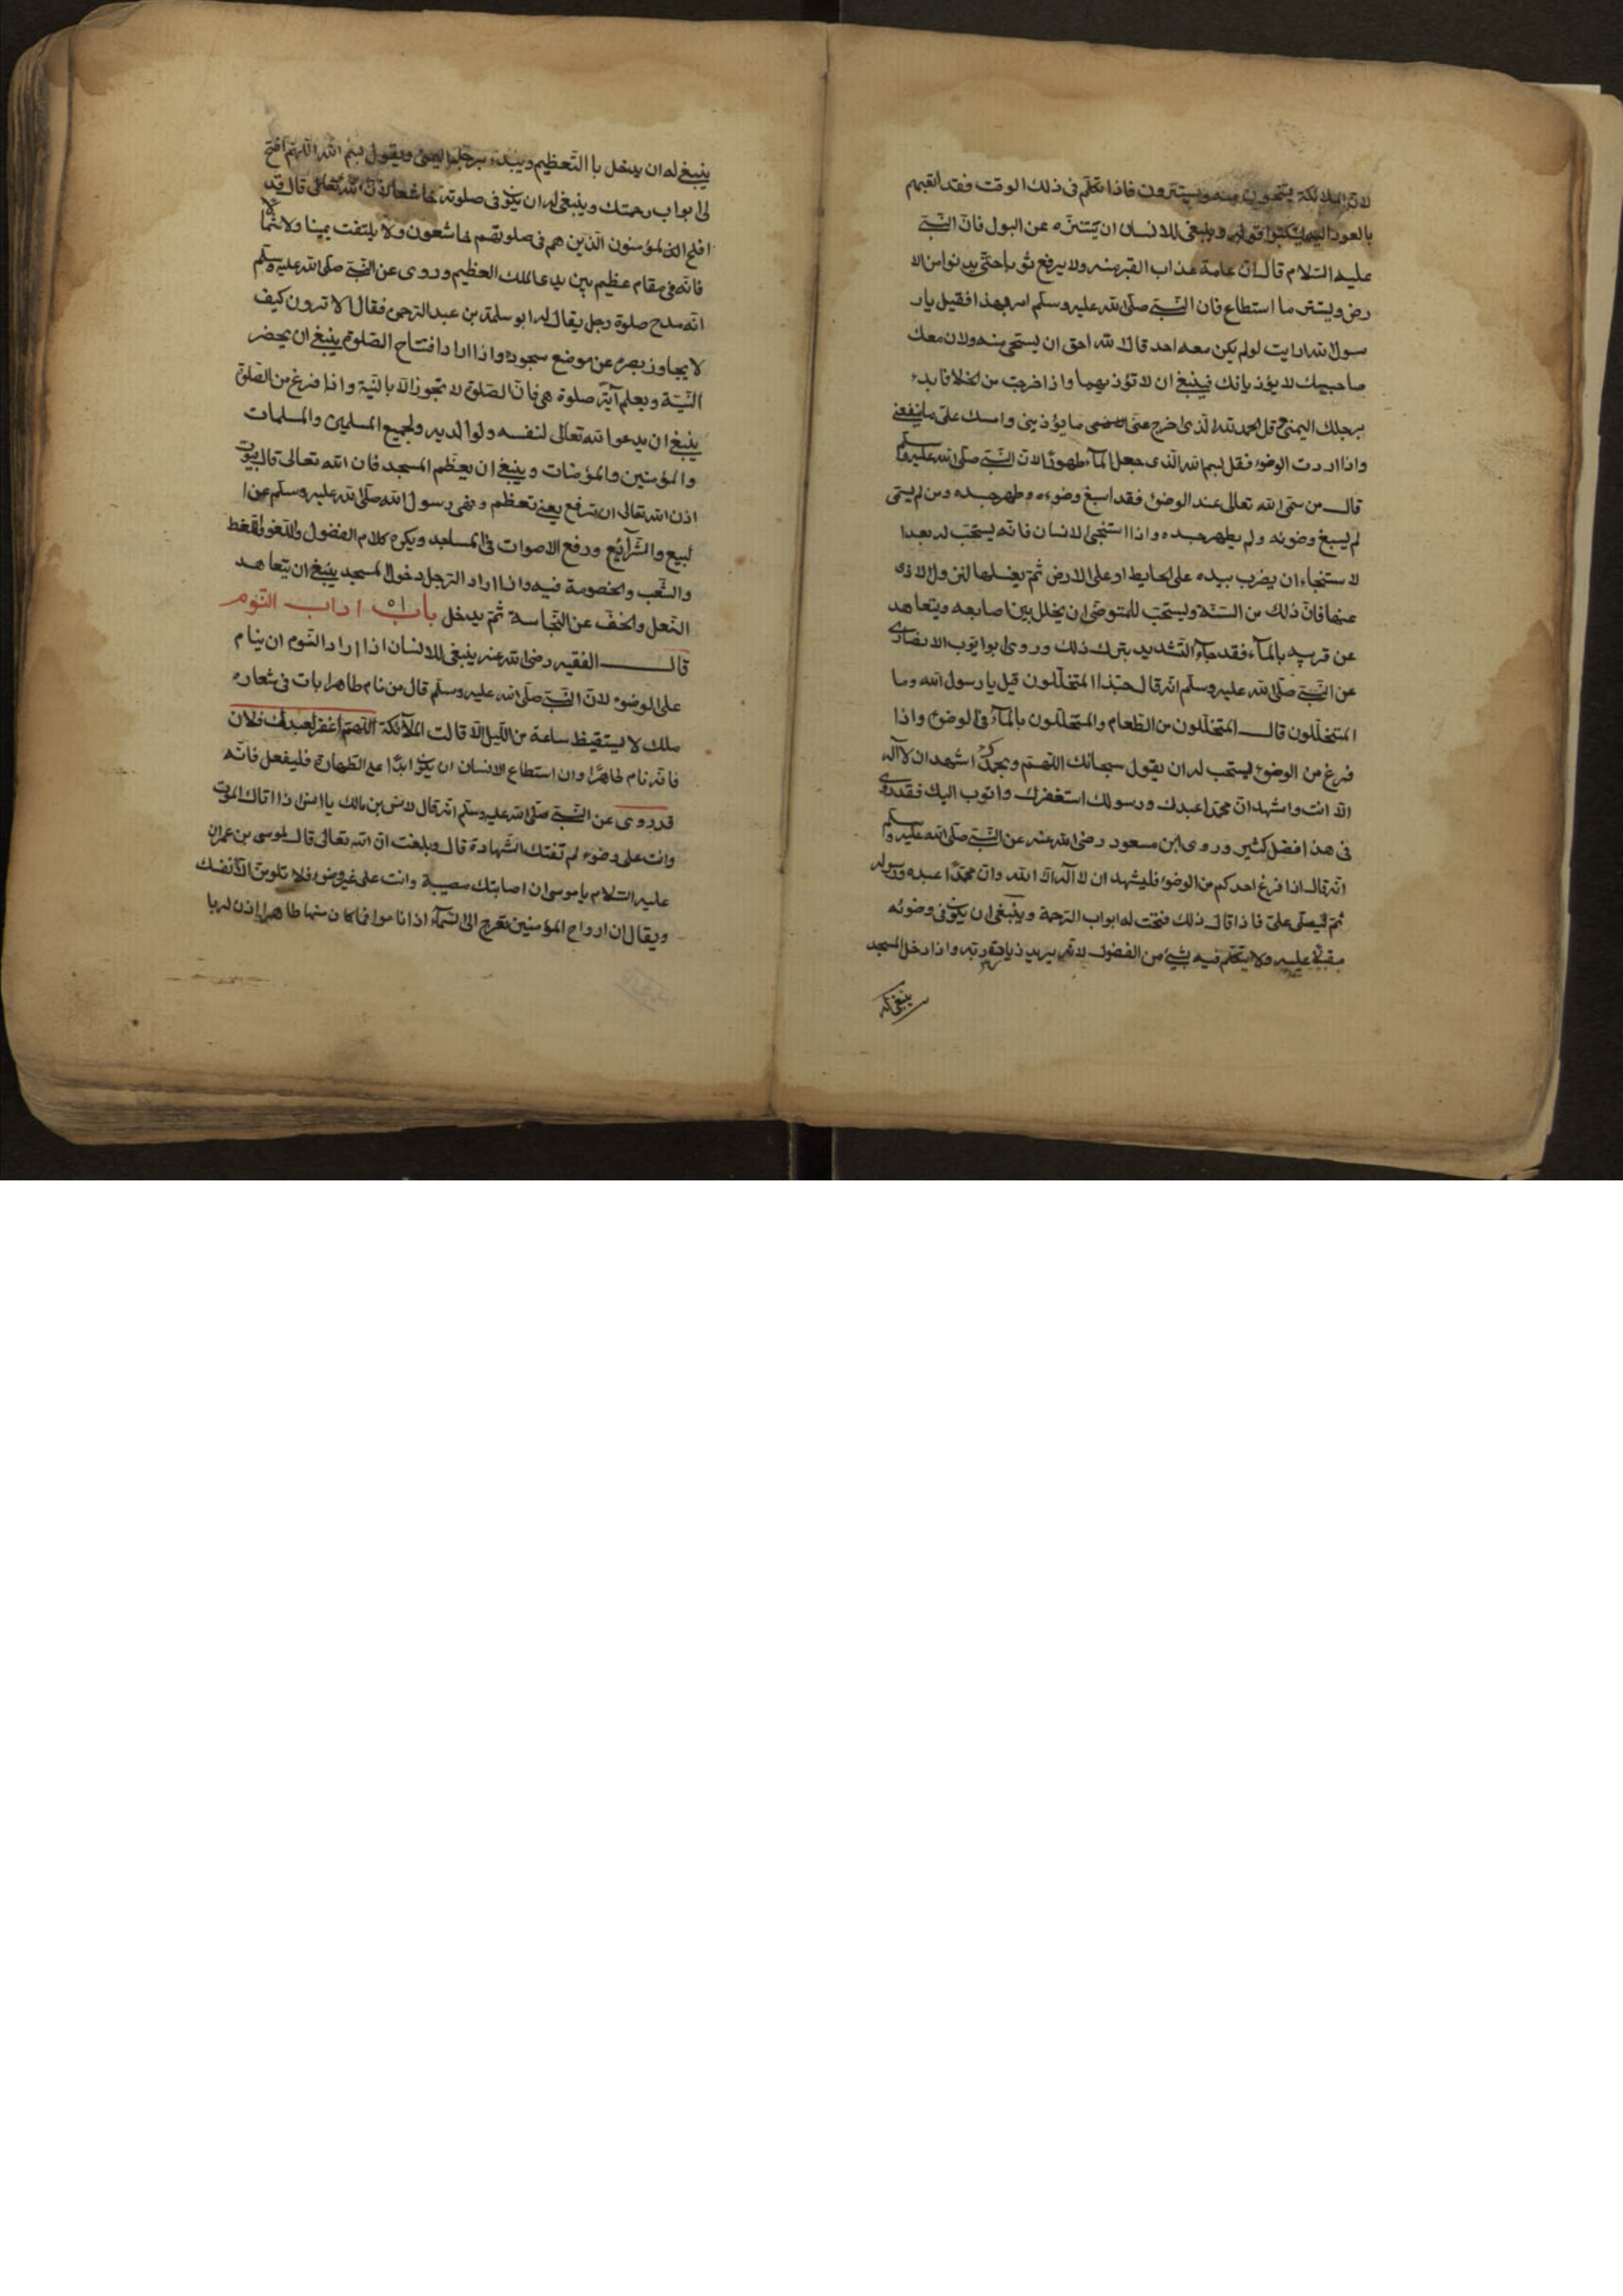 لان الملائكة يتنحون عنه ويستترون فاذا تكلم فى ذلك الوقت فقد اتعبهم
بالعود اليه ليكتبوا قوله وينبغى للانسان ان يتنزه عن البول فان النبى
عليه السلام قال ان عامة عذاب القبر منه ولا يرفع ثوبا حتى يدنو من الا
رض ويستتر ما استطاع فان النبى صلى الله عليه وسلم امر بهذا فقيل يا ر
سول الله ارايت لو لم يكن معه احد قال الله احق ان يستحى منه ولان معك
صاحبيك لا يؤذيانك فينبغى ان لا تؤذيهما واذا خرجت من الخلا فابدء
برجلك اليمنى وقل الحمد لله الذى اخرج عنى ما يؤذينى وامسك على ما ينفعنى
واذا اردت الوضوء فقل بسم الله الذى جعل الماء طهورا لان النبى صلى الله عليه وسلم
قال من سمى الله تعالى عند الوضوء فقد اسبغ وضوءه وطهر جسده ومن لم يسمى
لم يسبغ وضوئه ولم يطهر جسده واذا استنجى الانسان فانه يستحب له بعد ا
لاستنجاء ان يضرب بيده على الحايط او على الارض ثم يغسلها لتزول الاذى
عنها فان ذلك من السنة ويستحب للمتوضى ان يخلل بين اصابعه ويتعاهد
عن قربه بالماء فقد جاء التشديد بترك ذلك وروى ابو ايوب الانصارى
عن النبى صلى الله عليه وسلم انه قال حبذا المتخللون قيل يا رسول الله وما
المتخللون قال المتخللون من الطعام والمتخللون بالماء فى الوضوء واذا
فرغ من الوضوء يستحب له ان يقول سبحانك اللهم وبحمدك اشهد ان لا اله
الا انت واشهد ان محمدا عبدك ورسولك استغفرك واتوب اليك فقد روى
فى هذا فضل كثير وروى ابن مسعود رضى الله عنه عن النبى صلى الله عليه وسلم
انه قال اذا فرغ احدكم من الوضوء فليشهد ان لا اله الا الله وان محمدا عبده ورسوله
ثم ليصلى على فاذا قال ذلك فتحت له ابواب الرحمة وينبغى ان يكون فى وضوئه
مقبلا عليه ولا يتكلم فيه بشئ من الفضول لانه يريد زيادة ربه واذا دخل المسجد
ينبغى له
ينبغى له ان يدخل با التعظيم ويبدء برجله اليمنى ويقول بسم الله اللهم افتح
لى ابواب رحمتك وينبغى له ان يكون فى صلوته خاشعا لان الله تعالى قال قد
افلح المؤمنون الذين هم فى صلوتهم خاشعون ولا يلتفت يمينا ولا شمالا
فانه فى مقام عظيم بين يدى الملك العظيم وروى عن النبى صلى الله عليه وسلم
انه مدح صلوة رجل يقال له ابو سلمة بن عبد الرحمن فقال الا ترون كيف
لا يجاوز بصره عن موضع سجوده واذا اراد افتتاح الصلوة ينبغى ان يحضر
النية ويعلم اية صلوة هى فان الصلوة لا تجوز الا بالنية واذا فرغ من الصلوة
ينبغى ان يدعوا الله تعالى لنفسه ولوالديه ولجميع المسلمين والمسلمات
والمؤمنين والمؤمنات وينبغى ان يعظم المسجد فان الله تعالى قال فى بيوت
اذن الله تعالى ان ترفع يعنى تعظم ونهى رسول الله صلى الله عليه وسلم عن ا
لبيع والشرائع ورفع الاصوات فى المساجد ويكره كلام الفضول واللغو واللغط
والشغب والخصومة فيه واذا اراد الرجل دخول المسجد ينبغى ان يتعاهد
النعل والخف عن النجاسة ثم يدخل باب ٥١ اداب النوم
قال الفقيه رضى الله عنه ينبغى للانسان اذا اراد النوم ان ينام
على الوضوء لان النبى صلى الله عليه وسلم قال من نام طاهرا بات فى شعاره
ملك لا يستيقيظ ساعة من الليل الا قالت الملائكة اللهم اغفر لعبدك فلان
فانه نام طاهرا وان استطاع الانسان ان يكون ابدا على الطهارة فليفعل فانه
قد روى عن النبى صلى الله عليه وسلم انه قال لانس بن مالك يا انس اذا اتاك الموت
وانت على وضوء لم تفتك الشهادة قال وبلغت ان الله تعالى قال لموسى بن عمران
عليه السلام يا موسى ان اصابتك مصيبة وانت على غير وضوء فلا تلومن الا نفسك
ويقال ان ارواح المؤمنين تعرج الى السماء اذا ناموا فما كان منها طاهرا اذن له با